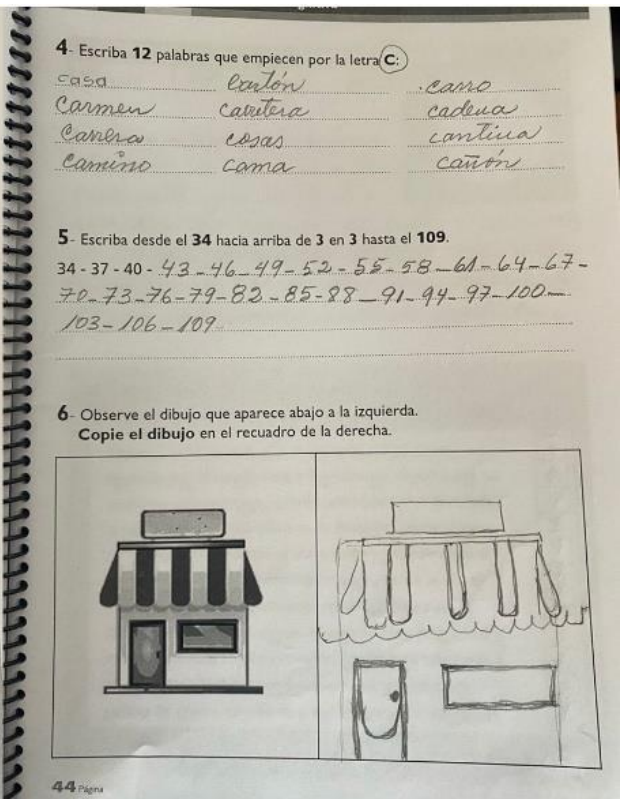 4- Escriba 12 palabras que empiecen por la letra C:
casa cartón .carro
Carmen carretera cadena
Carrera cosas cantina
Camino cama cañón
5- Escriba desde el 34 hacia arriba de 3 en 3 hasta el 109.
34 - 37 - 40 - 43 - 46 - 49 - 52 - 55 - 58 - 61 - 64 - 67 -
70 - 73 - 76 - 79 - 82 - 85 - 88 - 91 - 94 - 97 - 100 -
103 - 106 - 109
6- Observe el dibujo que aparece abajo a la izquierda.
Copie el dibujo en el recuadro de la derecha.
44 Página